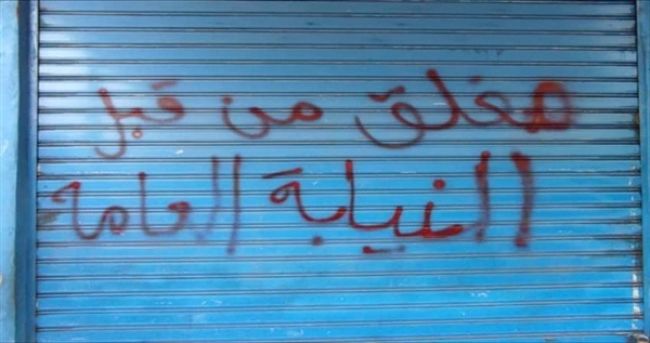 مغلق من قبل
النيابة العامة